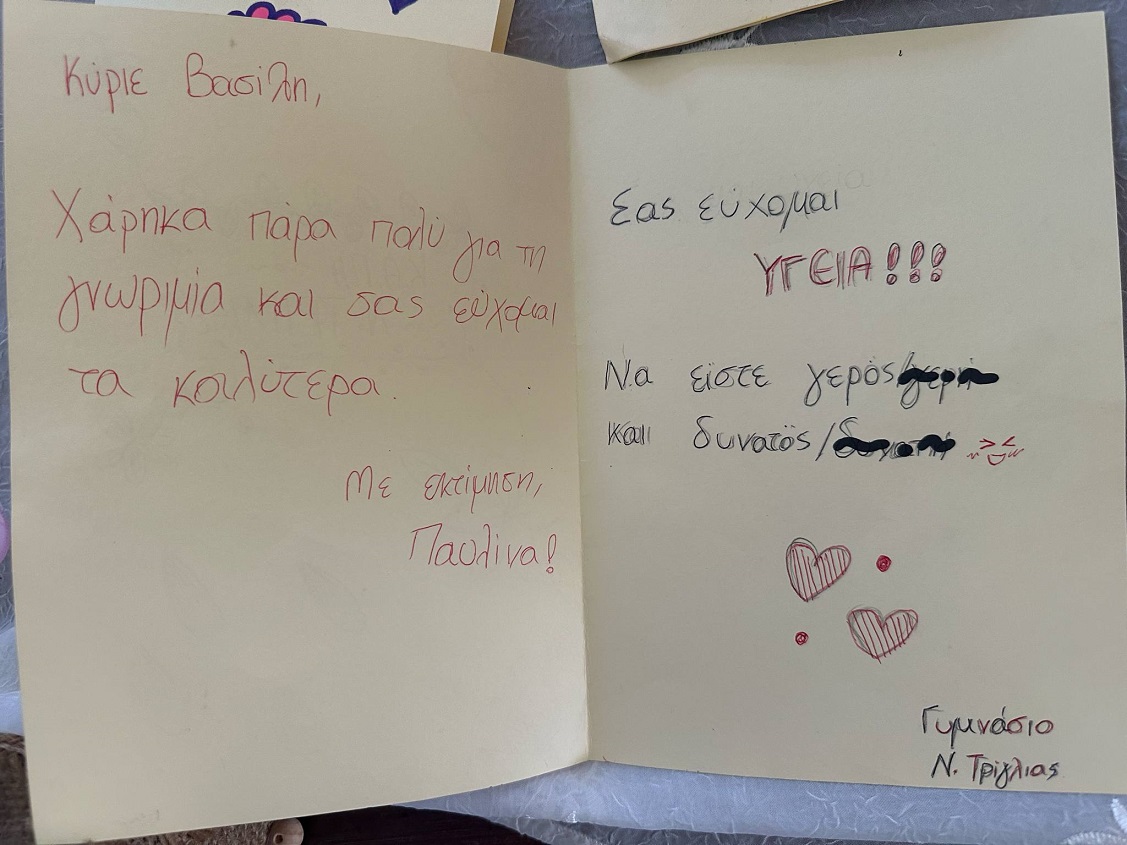 Κύριε Βασίλη,
Χάρηκα πάρα πολύ για τη
γνωριμία και σας εύχομαι
τα καλύτερα.
Με εκτίμηση,
Παυλίνα!
Σας εύχομαι
ΥΓΕΙΑ!!!
Να είστε γερός/γερή
και δυνατός/
Γυμνάσιο
Ν. Τρίγλιας